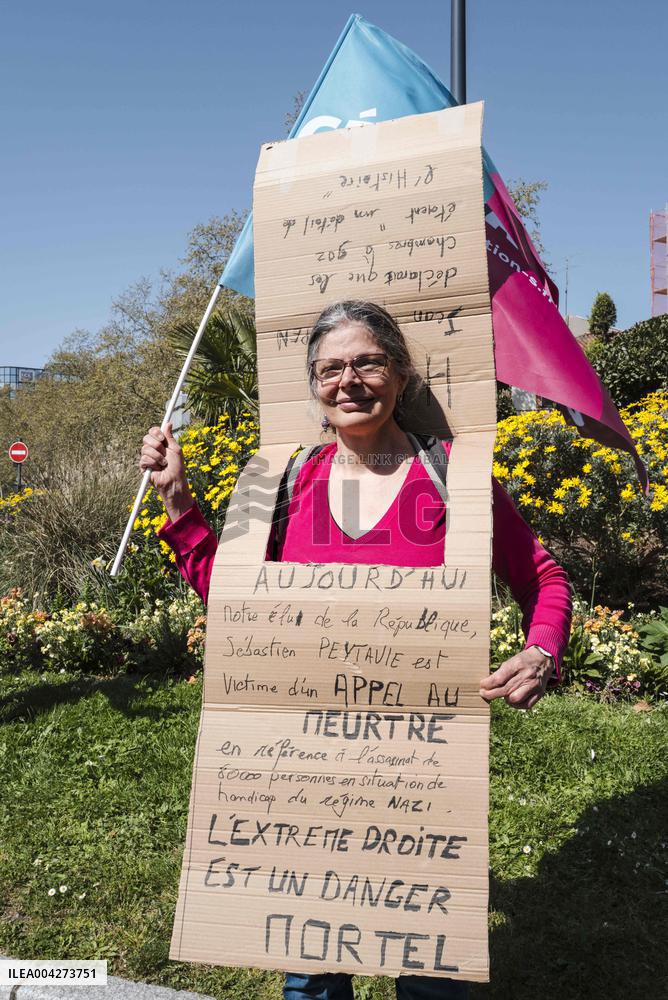 H
Jean PEN
déclarait que les
chambres à gaz
étaient "un détail de
l'Histoire"
IMAGE LINK GLOBAL
ILG
AUJOURD'HUI
notre élu de la République,
Sébastien PEYTAVIE est
Victime d'un APPEL AU
MEURTRE
en référence à l'assassinat de
personnes en situation de
handicap du régime NAZI.
L'EXTREME DROITE
EST UN DANGER
MORTEL
ILEA004273751